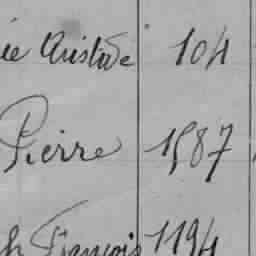 ée Aristide 104
Pierre 1587
ph François 1194